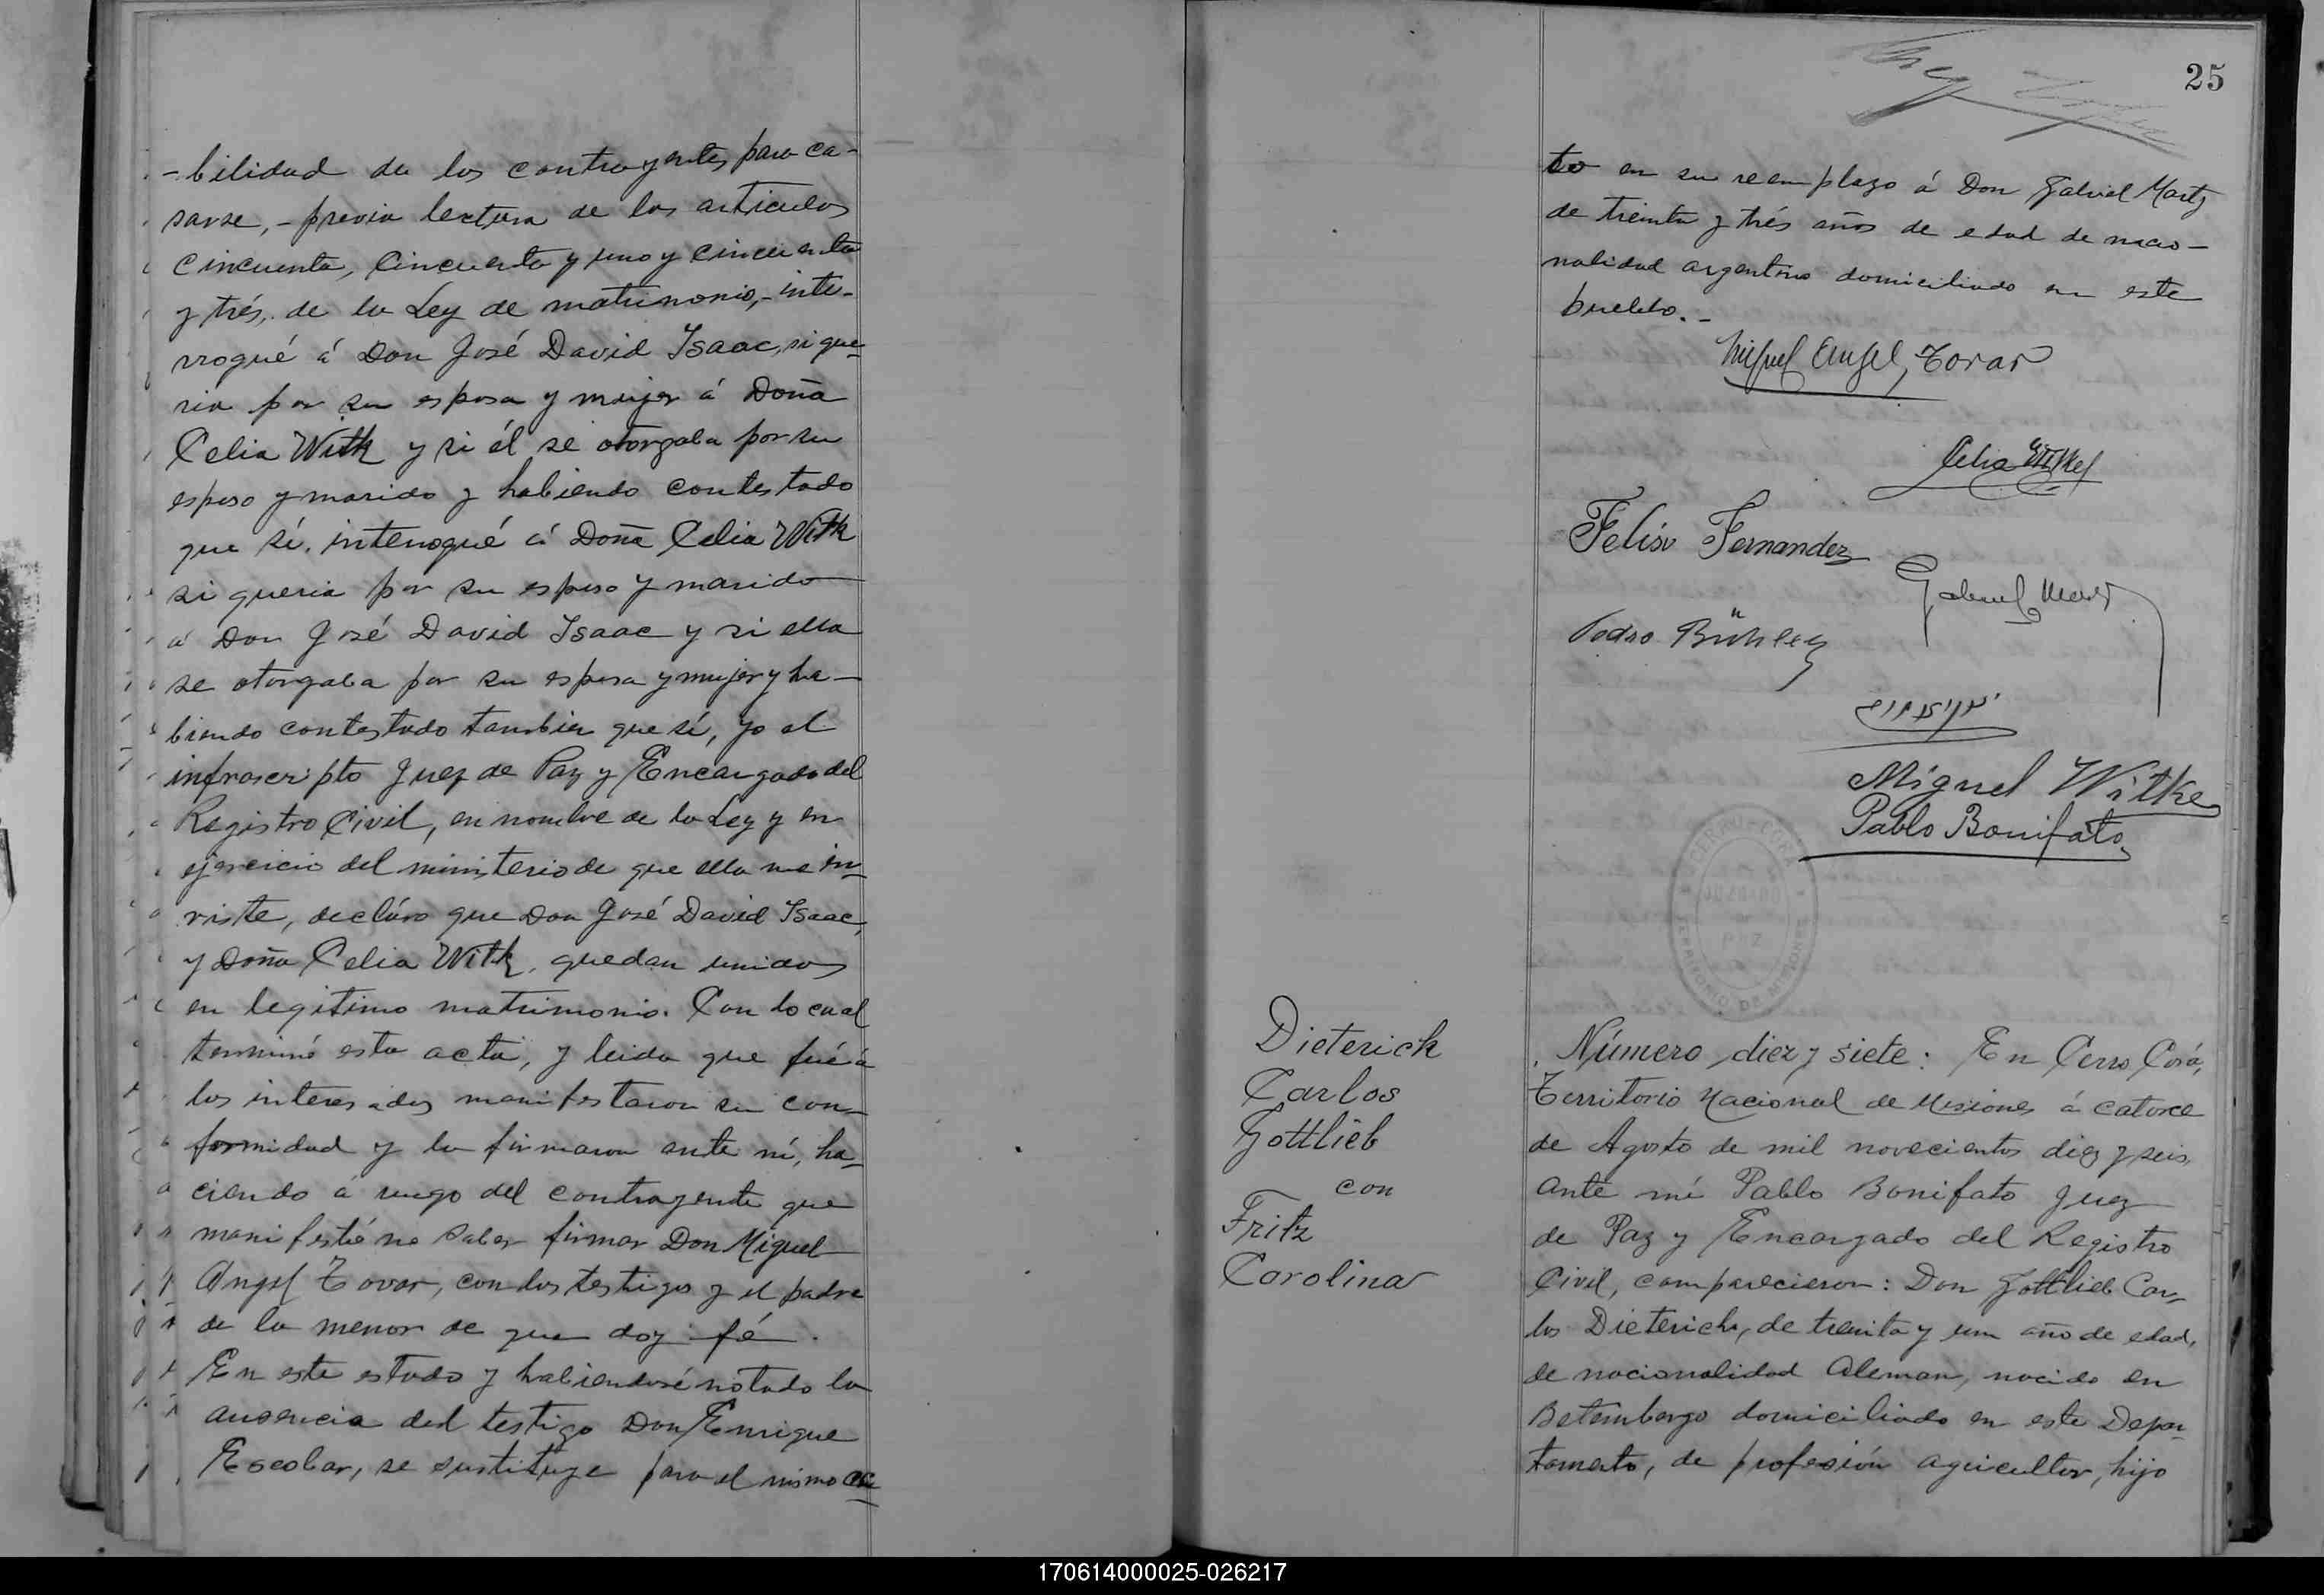 -bilidad de los contrayentes para ca-
sarse, - previa lectura de los articulos
cincuenta, cincuenta y uno y cincuenta
y trés, de la Ley de matrimonio, - inte-
rrogué á Don José David Isaac, si que-
ria por su esposa y mujer á Doña
Celia Witk y si él se otorgaba por su
esposo y marido y habiendo contestado
que sí, interrogué á Doña Celia Witk
si queria por su esposo y marido
á Don José David Isaac y si ella
se otorgaba por su esposa y mujer y ha-
biendo contestado tambien que sí, yo el
infrascripto Juez de Paz y Encargado del
Registro Civil, en nombre de la Ley y en
ejercicio del ministerio de que ella me in-
viste, decláro que Don José David Isaac,
y Doña Celia Witk, quedan unidos
en legitimo matrimonio. Con lo cual
terminó esta acta, y leida que fué á
los interesados manifestaron su con-
formidad y la firmaron ante mi, ha-
ciendo á ruego del contrayente que
manifestó no saber firmar Don Miguel
Angel Tovar, con los testigos y el padre
de la menor de que doy fé.
En este estado y habiendosé nótado la
ausencia del testigo Don Enrique
Escobar, se sustituye para el mismo ac-
25
to en su reemplazo á Don Gabriel Martz
de treinta y trés años de edad de nacio-
nalidad argentino domiciliado en este
pueblo. -
Miguel Angel Tovar
Celia Witke
Felisa Fernandez
Gabriel
Pedro Bühler
Miguel Witke
Pablo Bonifato
CERRO-CORÁ
JUZGADO
DE
PAZ
TERRITORIO DE MISIONES
Dieterich
Carlos
Gottlieb
con
Fritz
Carolina
Número diez y siete: En Cerro Corá,
Territorio Nacional de Misiones á catorce
de Agosto de mil novecientos diez y seis,
ante mi Pablo Bonifato Juez
de Paz y Encargado del Registro
Civil, comparecieron: Don Gottlieb Car-
los Dieterich, de treinta y un año de edad,
de nacionalidad Aleman, nacido en
Betembergo domiciliado en este Depar-
tamento, de profesión agricultor, hijo
170614000025-026217